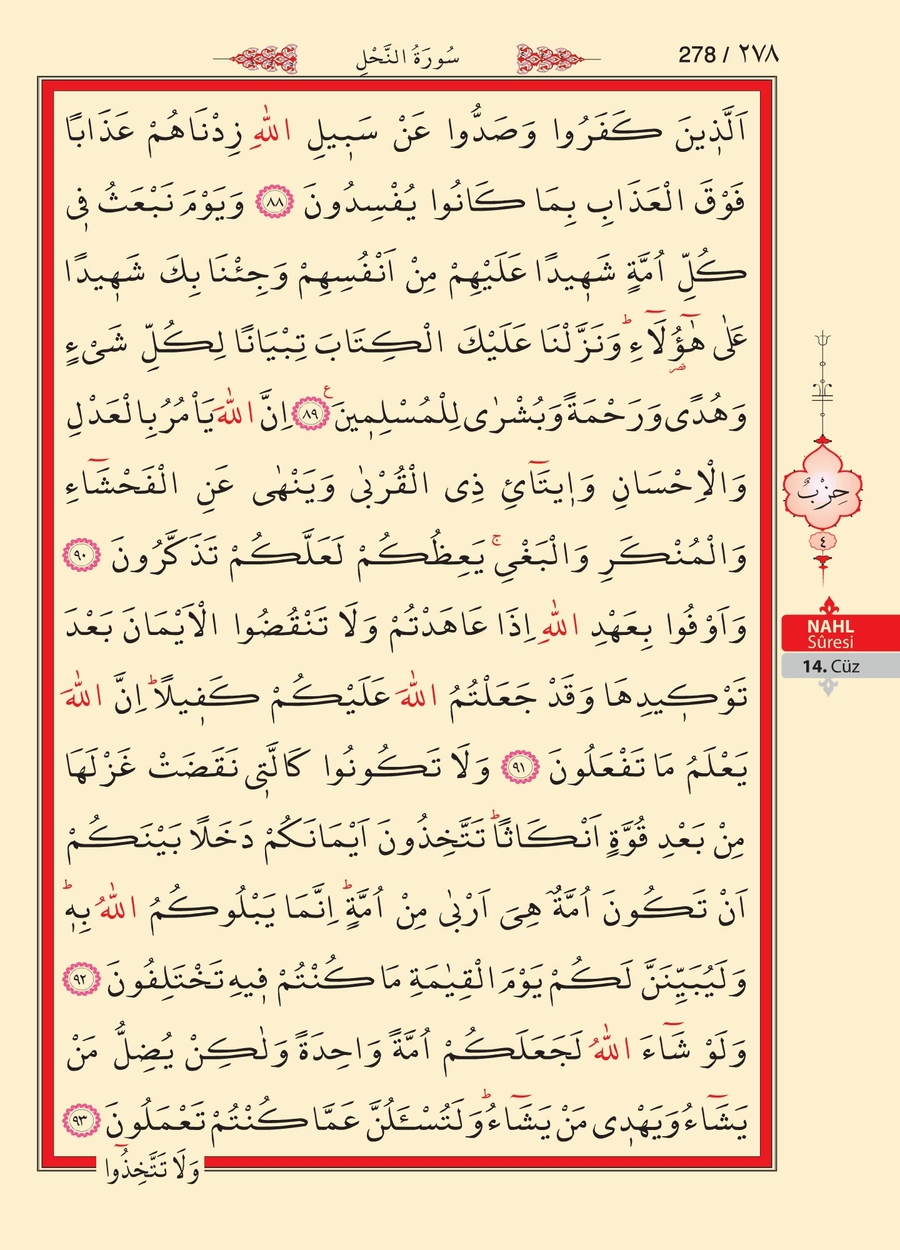 سُورَةُ النَّحْلِ
278 / ٢٧٨
اَلَّذ۪ينَ كَفَرُوا وَصَدُّوا عَنْ سَب۪يلِ اللّٰهِ زِدْنَاهُمْ عَذَابًا
فَوْقَ الْعَذَابِ بِمَا كَانُوا يُفْسِدُونَ ﴿٨٨﴾ وَيَوْمَ نَبْعَثُ ف۪ى
كُلِّ اُمَّةٍ شَه۪يدًا عَلَيْهِمْ مِنْ اَنْفُسِهِمْ وَجِئْنَا بِكَ شَه۪يدًا
عَلٰى هٰٓؤُ۬لَٓاءِۜ وَنَزَّلْنَا عَلَيْكَ الْكِتَابَ تِبْيَانًا لِكُلِّ شَىْءٍ
وَهُدًى وَرَحْمَةً وَبُشْرٰى لِلْمُسْلِم۪ينَ۟ ﴿٨٩﴾ اِنَّ اللّٰهَ يَاْمُرُ بِالْعَدْلِ
وَالْاِحْسَانِ وَا۪يتَٓائِ ذِى الْقُرْبٰى وَيَنْهٰى عَنِ الْفَحْشَٓاءِ
وَالْمُنْكَرِ وَالْبَغْىِۚ يَعِظُكُمْ لَعَلَّكُمْ تَذَكَّرُونَ ﴿٩٠﴾
وَاَوْفُوا بِعَهْدِ اللّٰهِ اِذَا عَاهَدْتُمْ وَلَا تَنْقُضُوا الْاَيْمَانَ بَعْدَ
تَوْك۪يدِهَا وَقَدْ جَعَلْتُمُ اللّٰهَ عَلَيْكُمْ كَف۪يلًاۜ اِنَّ اللّٰهَ
يَعْلَمُ مَا تَفْعَلُونَ ﴿٩١﴾ وَلَا تَكُونُوا كَالَّت۪ى نَقَضَتْ غَزْلَهَا
مِنْ بَعْدِ قُوَّةٍ اَنْكَاثًاۜ تَتَّخِذُونَ اَيْمَانَكُمْ دَخَلًا بَيْنَكُمْ
اَنْ تَكُونَ اُمَّةٌ هِىَ اَرْبٰى مِنْ اُمَّةٍۜ اِنَّمَا يَبْلُوكُمُ اللّٰهُ بِه۪ۜ
وَلَيُبَيِّنَنَّ لَكُمْ يَوْمَ الْقِيٰمَةِ مَا كُنْتُمْ ف۪يهِ تَخْتَلِفُونَ ﴿٩٢﴾
وَلَوْ شَٓاءَ اللّٰهُ لَجَعَلَكُمْ اُمَّةً وَاحِدَةً وَلٰكِنْ يُضِلُّ مَنْ
يَشَٓاءُ وَيَهْد۪ى مَنْ يَشَٓاءُۜ وَلَتُسْـَٔلُنَّ عَمَّا كُنْتُمْ تَعْمَلُونَ ﴿٩٣﴾
وَلَا تَتَّخِذُٓوا
حِزْبٌ
٤
NAHL
Sûresi
14. Cüz